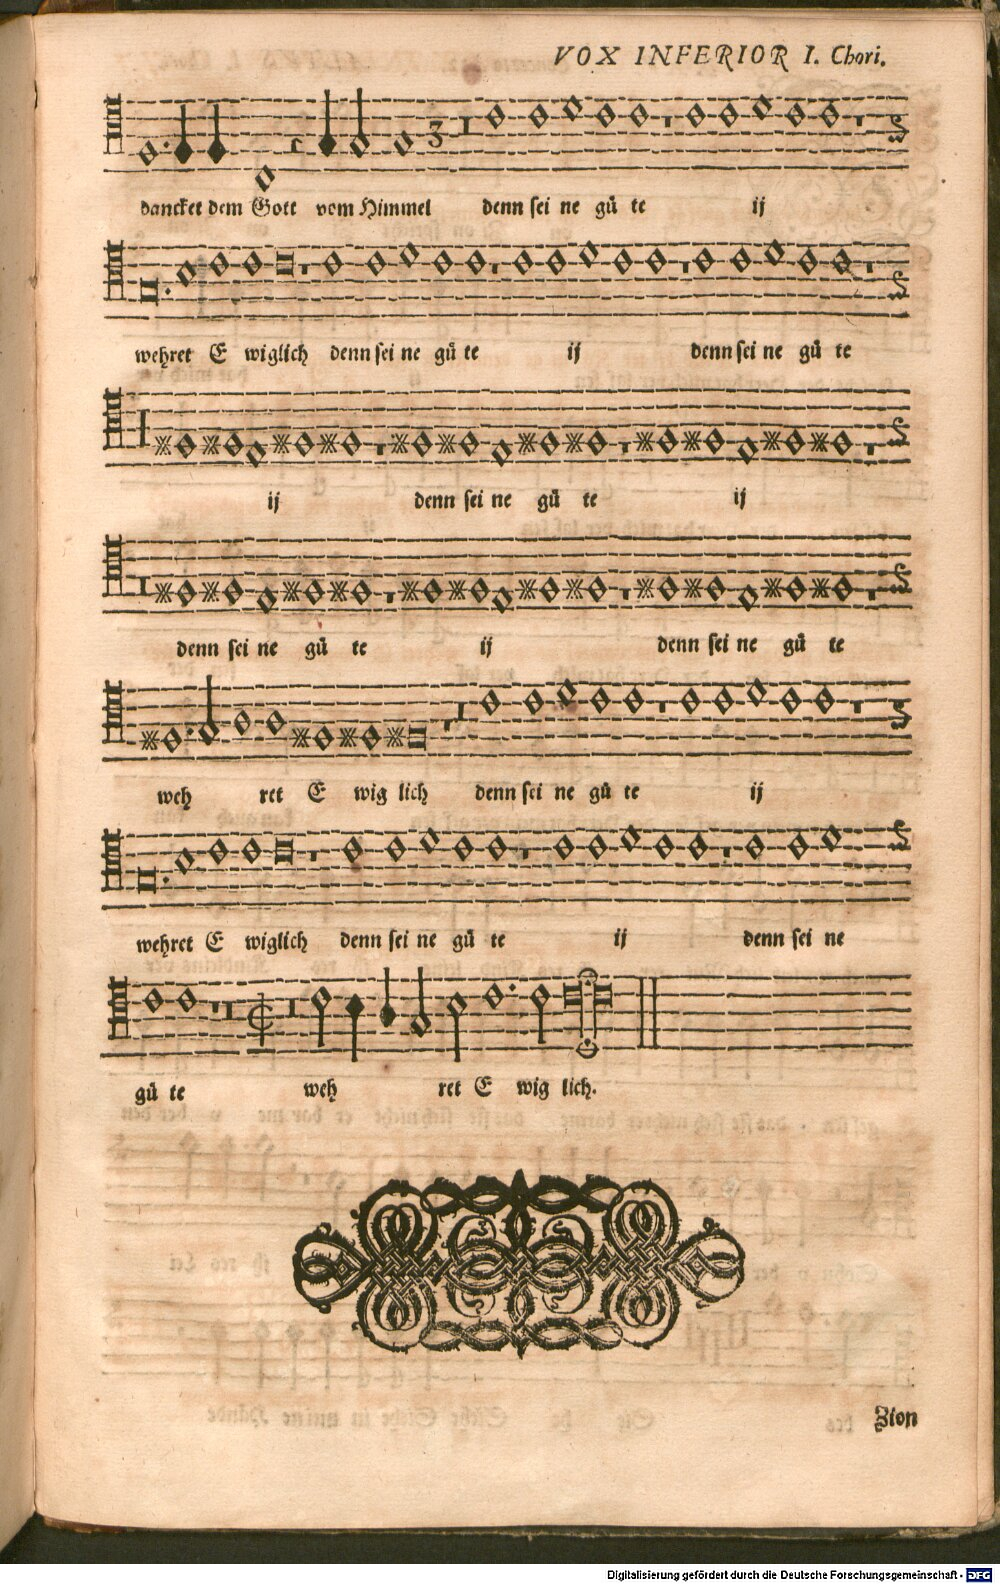 VOX INFERIOR I. Chori.
dancket dem Gott vom Himmel denn sei ne gü te ij
wehret E wiglich denn sei ne gü te ij denn sei ne gü te
ij denn sei ne gü te ij
denn sei ne gü te ij denn sei ne gü te
weh ret E wig lich denn sei ne gü te ij
wehret E wiglich denn sei ne gü te ij denn sei ne
gü te weh ret E wig lich.
Zion
Digitalisierung gefördert durch die Deutsche Forschungsgemeinschaft - DFG